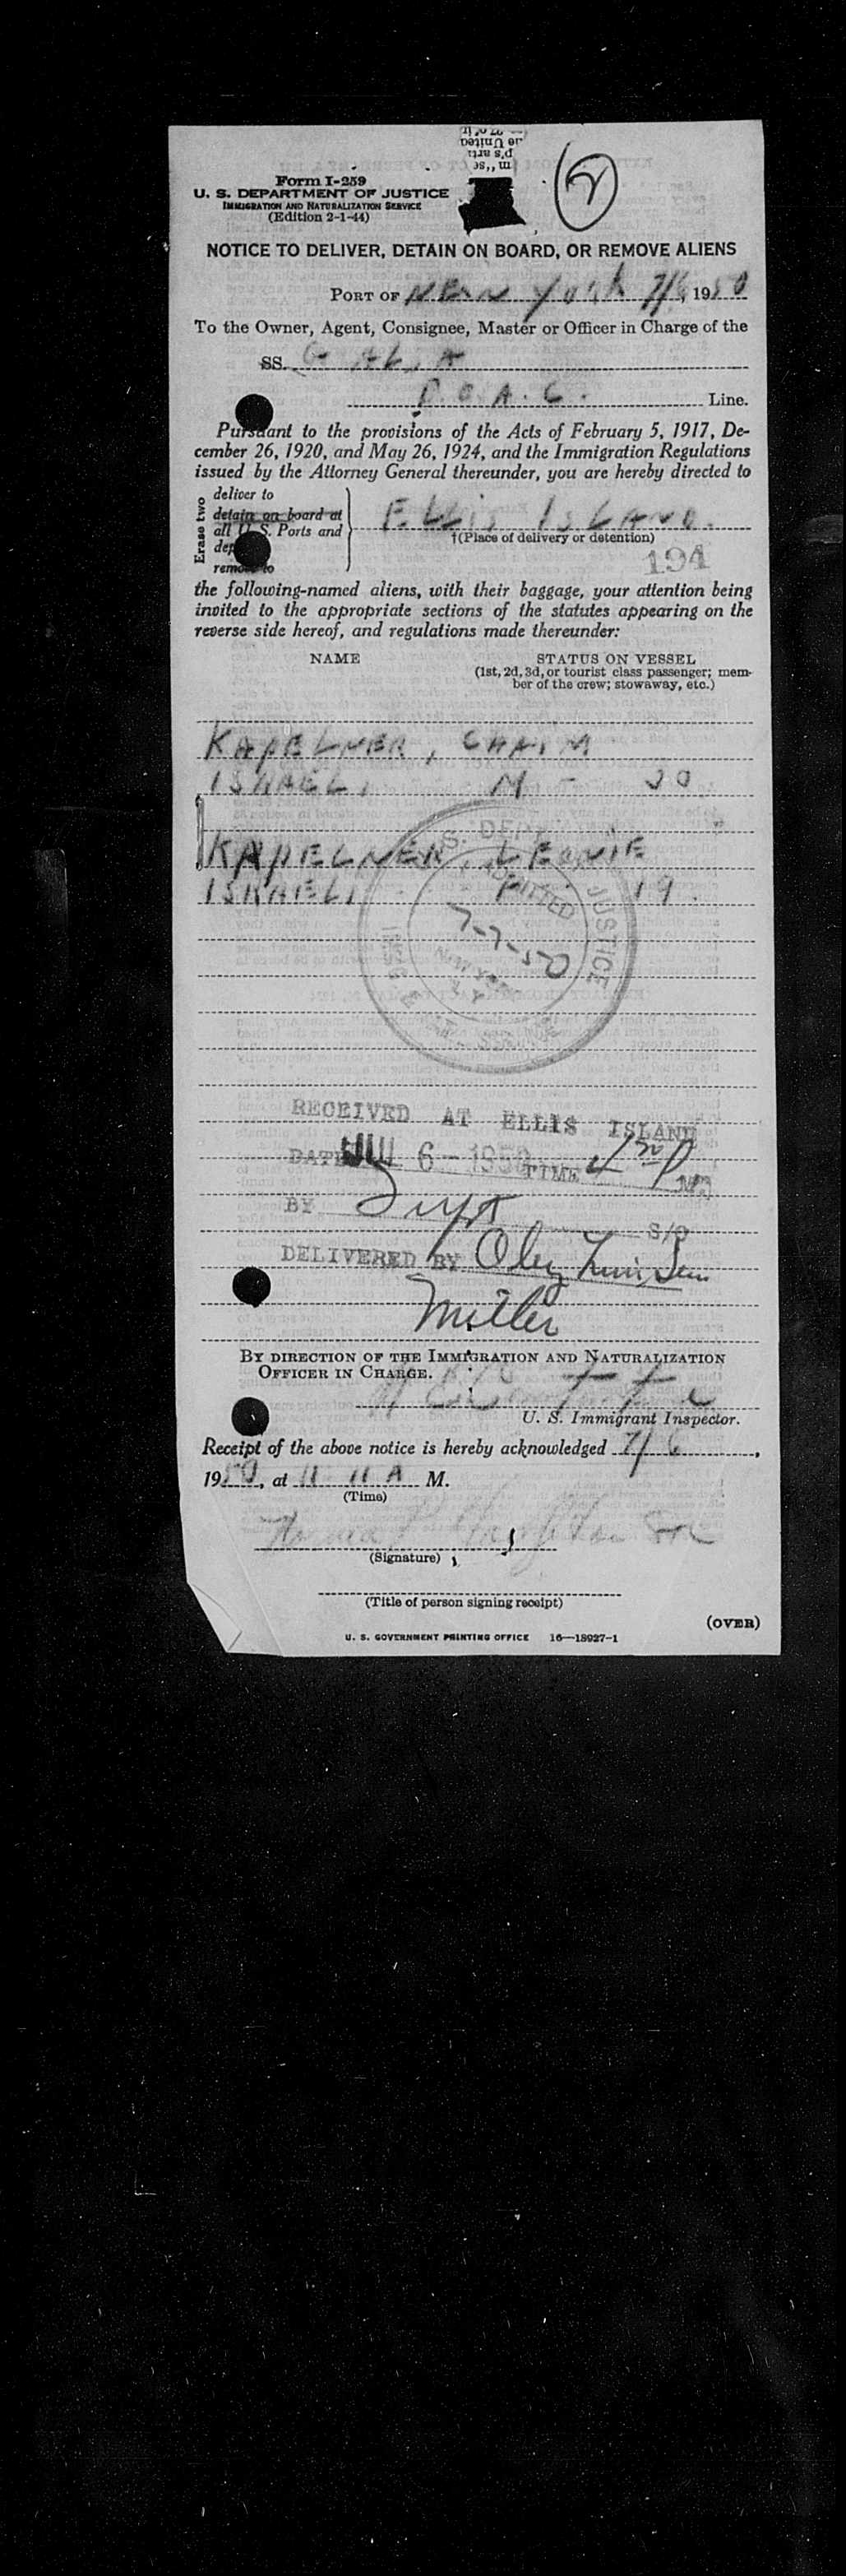 Form I-259
U. S. DEPARTMENT OF JUSTICE
IMMIGRATION AND NATURALIZATION SERVICE
(Edition 2-1-44)
2
NOTICE TO DELIVER, DETAIN ON BOARD, OR REMOVE ALIENS
PORT OF NEW YORK 7/6, 1950
To the Owner, Agent, Consignee, Master or Officer in Charge of the
SS.
Line.
Pursuant to the provisions of the Acts of February 5, 1917, De-
cember 26, 1920, and May 26, 1924, and the Immigration Regulations
issued by the Attorney General thereunder, you are hereby directed to
Erase two
deliver to
detain on board at
all U. S. Ports and
remove to
ELLIS ISLAND.
†(Place of delivery or detention)
194
the following-named aliens, with their baggage, your attention being
invited to the appropriate sections of the statutes appearing on the
reverse side hereof, and regulations made thereunder:
NAME
STATUS ON VESSEL
(1st, 2d, 3d, or tourist class passenger; mem-
ber of the crew; stowaway, etc.)
KAPELNER, CHAIM
ISRAELI M -
KAPELNER, LEONIE
ISRAELI F - 19.
U. S. DEPT. JUSTICE
ADMITTED
7-7-50
NEW YORK
N. Y.
RECEIVED AT ELLIS ISLAND
DATE JUL 6 - 1950 TIME PM
BY S/O
DELIVERED BY
Miller
BY DIRECTION OF THE IMMIGRATION AND NATURALIZATION
OFFICER IN CHARGE.
U. S. Immigrant Inspector.
Receipt of the above notice is hereby acknowledged 7/6,
1950, at 11 11 A M.
(Time)
(Signature)
(Title of person signing receipt)
(OVER)
U. S. GOVERNMENT PRINTING OFFICE 16—18927-1